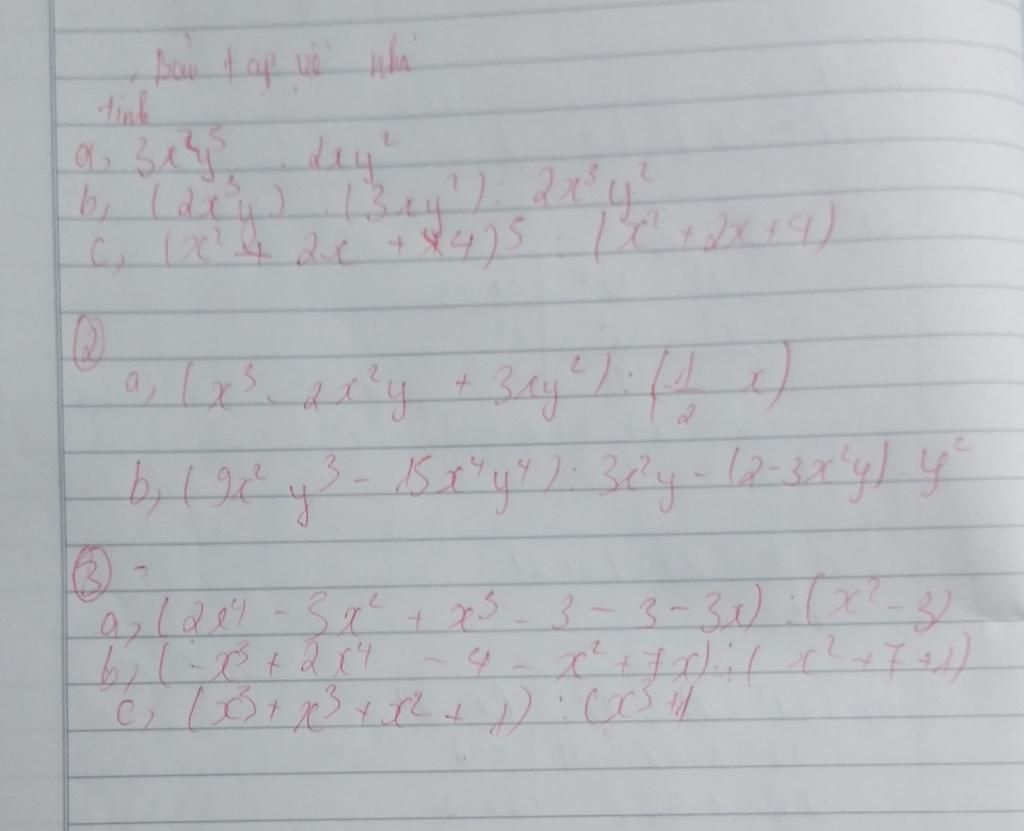 Bài tập về nhà
tính
a, 3x²y⁵ : 2xy²
b, (2x³y) . (3xy²) : 2x³y²
c, (x² + 2x + 4)⁵ : (x² + 2x + 4)
②
a, (x³ - 2x²y + 3xy²) : (1/2 x)
b, (9x²y³ - 15x⁴y⁴) : 3x²y - (2-3x²y) . y²
③
a, (2x⁴ - 3x² + x³ - 3 - 3 - 3x) : (x² - 3)
b, (-x³ + 2x⁴ - 4 - x² + 7x) : (x² + 7 + 1)
c, (x³ + x³ + x² + 1) : (x³ + 1